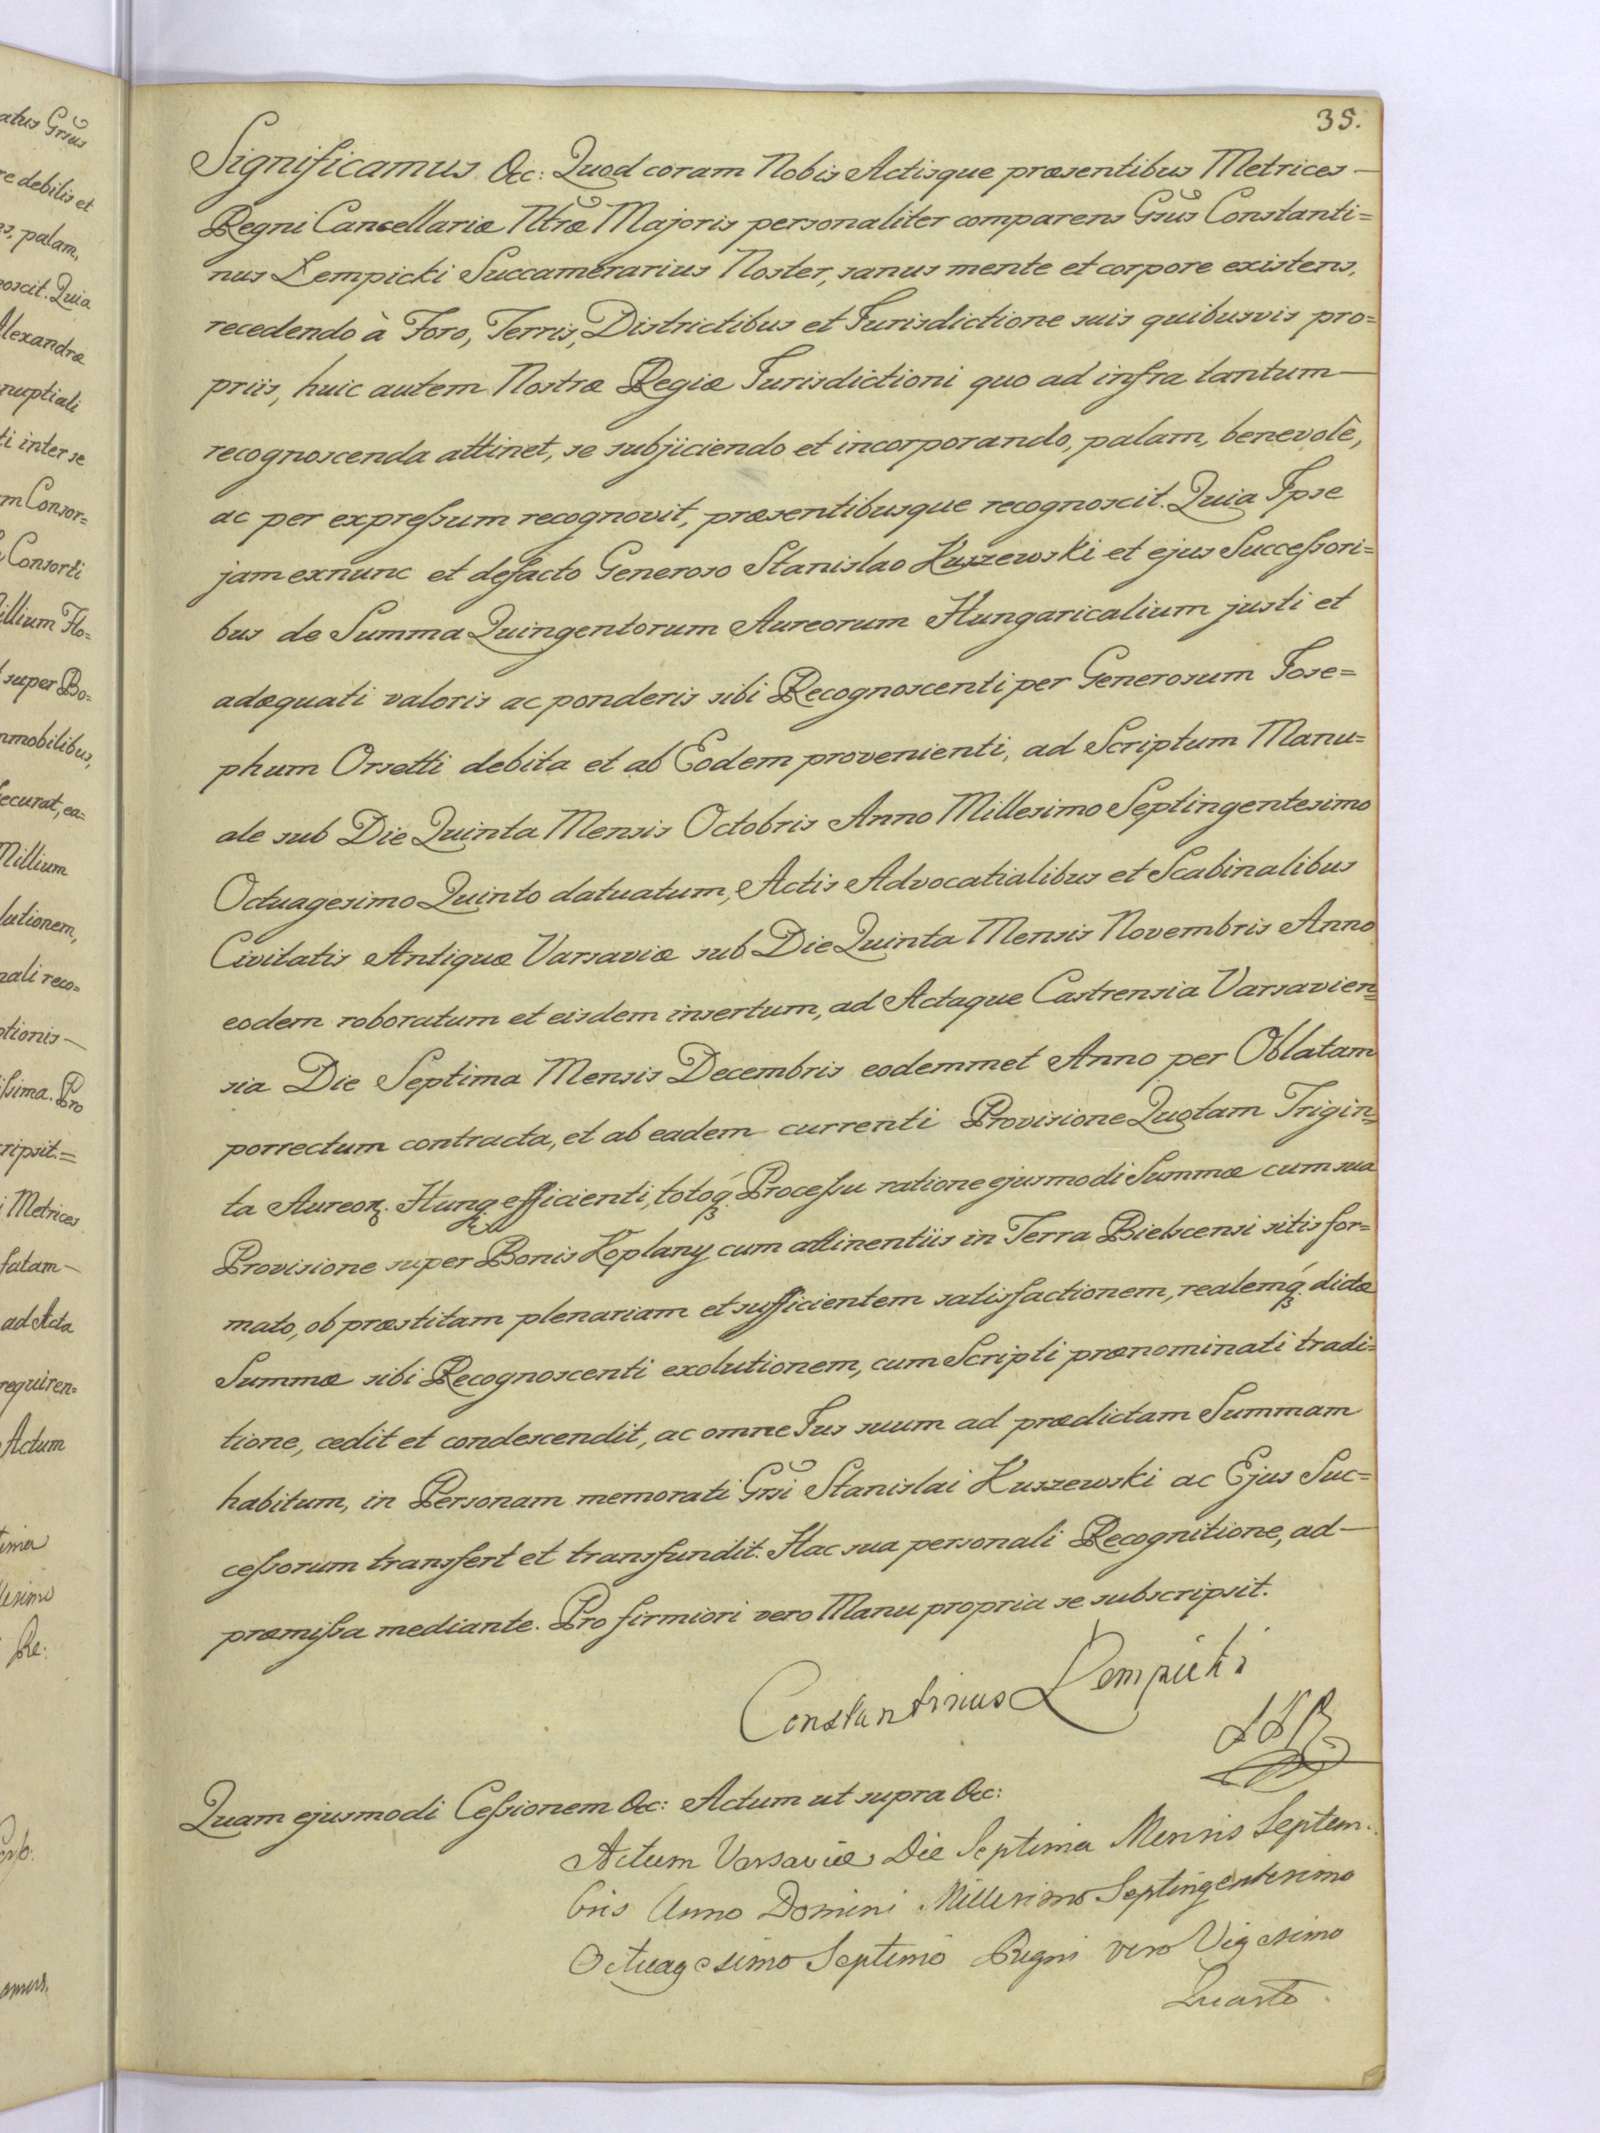 35.
Significamus &c: Quod coram Nobis Actisque præsentibus Metrices —
Regni Cancellariæ Ntræ Majoris personaliter comparens Gsus Constanti=
nus Łempicki Succamerarius Noster, sanus mente et corpore existens,
recedendo à Foro, Terris, Districtibus et Jurisdictione suis quibusvis pro=
priis, huic autem Nostræ Regiæ Jurisdictioni quo ad infra tantum —
recognoscenda attinet, se subjiciendo et incorporando, palam, benevolê,
ac per expreſsum recognovit, præsentibusque recognoscit. Quia Ipse
jam exnunc et defacto Generoso Stanislao Kuszewski et ejus Succeſsori=
bus de Summa Quingentorum Aureorum Hungaricalium justi et
adæquati valoris ac ponderis sibi Recognoscenti per Generosum Jose=
phum Orsetti debita et ab Eodem provenienti, ad Scriptum Manu=
ale sub Die Quinta Mensis Octobris Anno Millesimo Septingentesimo
Octuagesimo Quinto datuatum, Actis Advocatialibus et Scabinalibus
Civitatis Antiquæ Varsaviæ sub Die Quinta Mensis Novembris Anno
eodem roboratum et eisdem insertum, ad Actaque Castrensia Varsavien=
sia Die Septima Mensis Decembris eodemmet Anno per Oblatam
porrectum contracta, et ab eadem currenti Provisione Quotam Trigin=
ta Aureor. Hung. efficienti, totoq. Proceſsu ratione ejusmodi Summæ cum sua
Provisione super Bonis Koplany cum attinentiis in Terra Bielscensi sitis for=
mato, ob præstitam plenariam et sufficientem satisfactionem, realemq. dictæ
Summæ sibi Recognoscenti exolutionem, cum Scripti prænominati tradi=
tione, cedit et condescendit, ac omne Jus suum ad prædictam Summam
habitum, in Personam memorati Grsi Stanislai Kuszewski ac Ejus Suc=
ceſsorum transfert et transfundit. Hac sua personali Recognitione, ad —
præmiſsa mediante. Pro firmiori vero Manu propria se subscripsit.
Constantinus Łempicki
Quam ejusmodi Ceſsionem &c: Actum ut supra &c:
Actum Varsaviæ Die Septima Mensis Septem
bris Anno Domini Millesimo Septingentesimo
Octuagesimo Septimo Regni vero Vigesimo
Quarto.